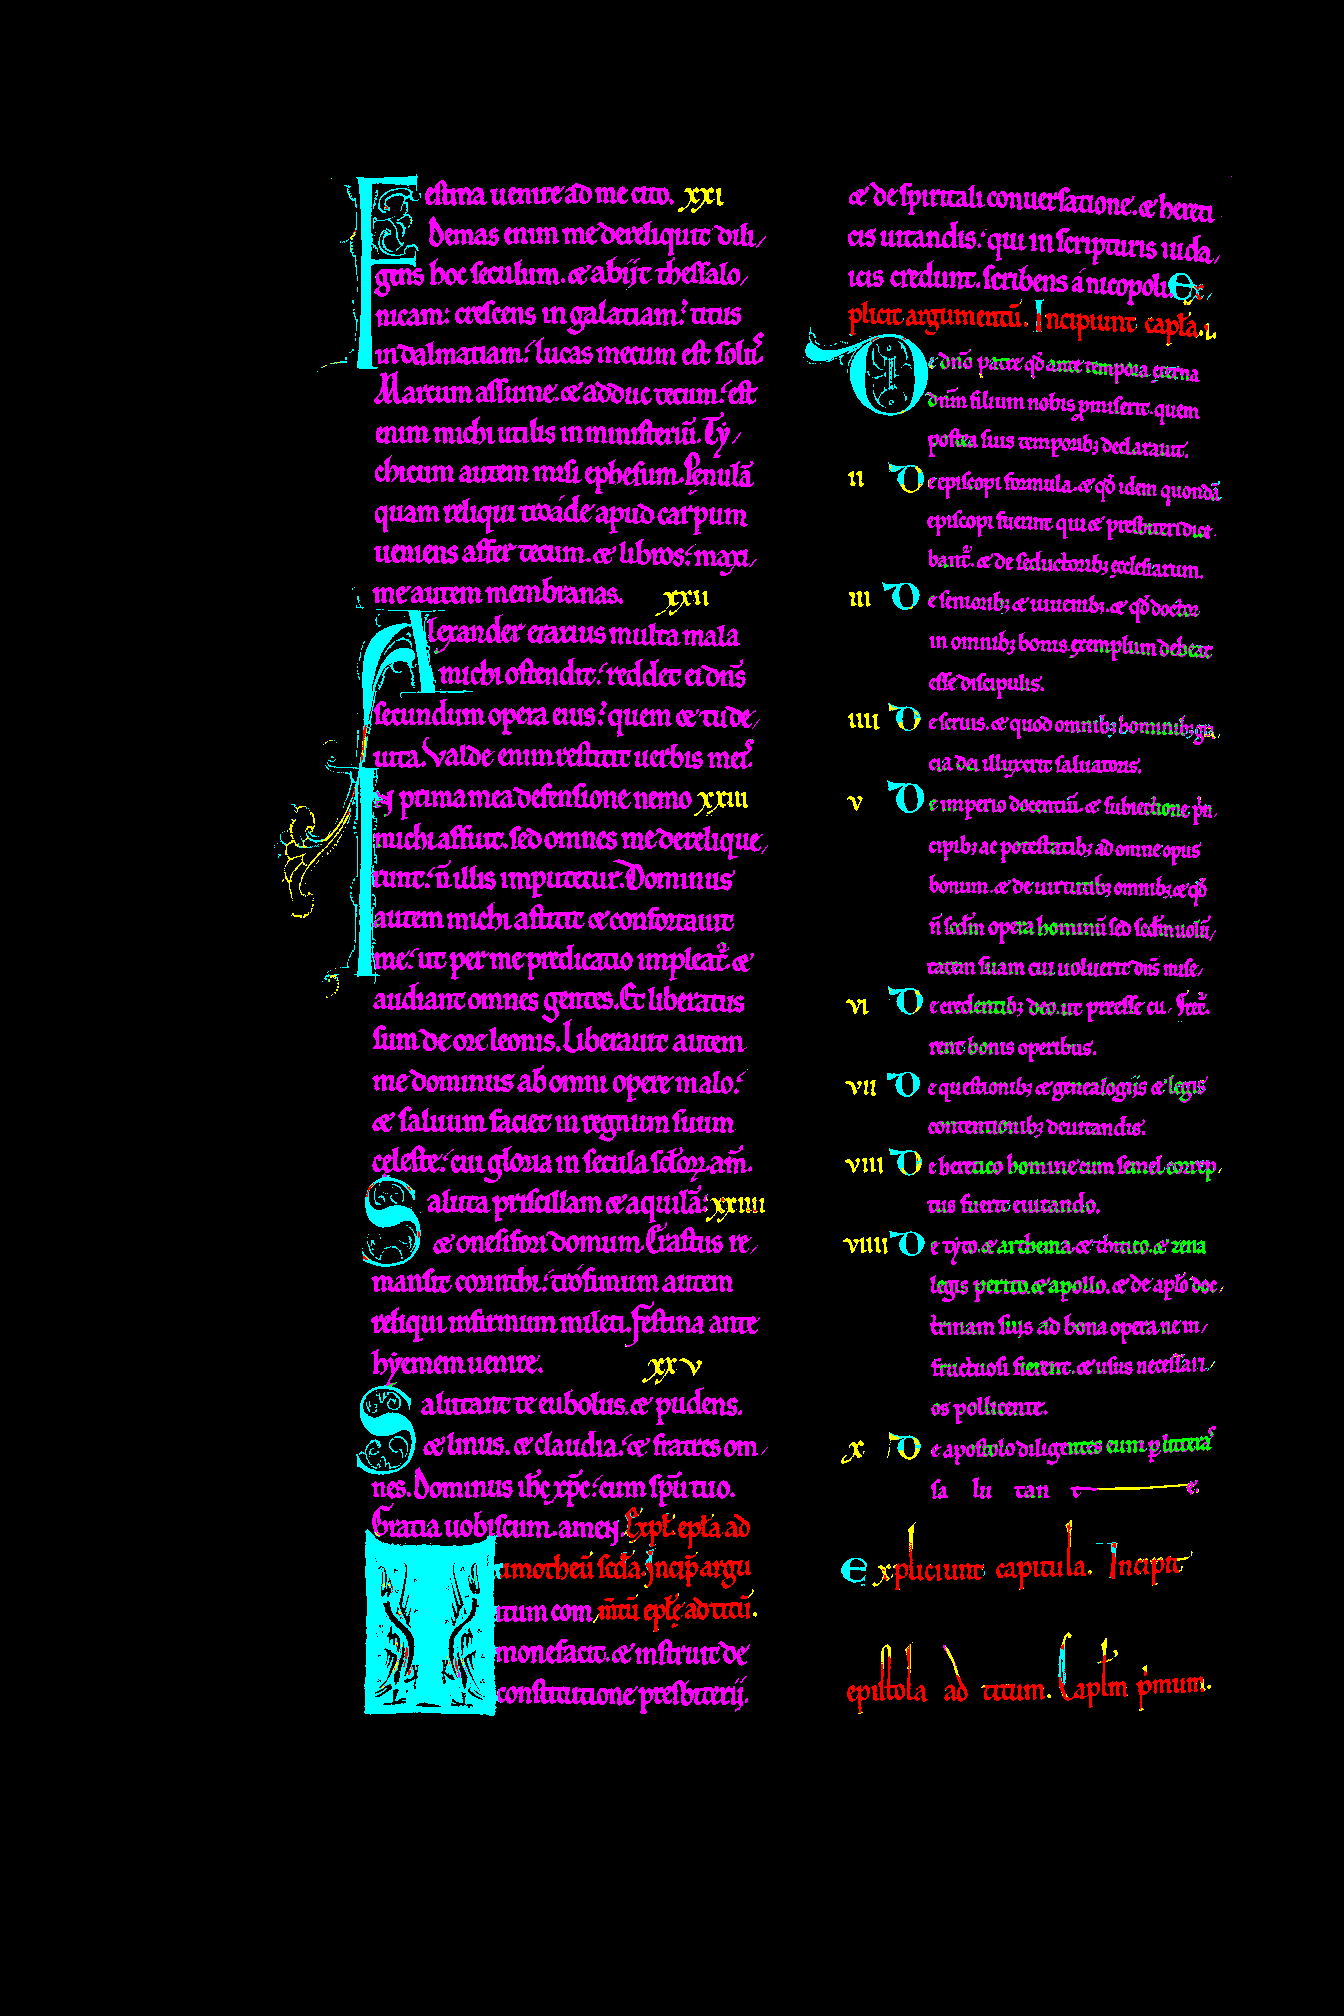 Festina uenire ad me cito. xxi
Demas enim me dereliquit dili/
gens hoc seculum. & abijt thessalo/
nicam: crescens in galatiam: titus
in dalmatiam: lucas mecum est solus.
Marcum assume. & adduc tecum: est
enim michi utilis in ministeriū. Ty/
chicum autem misi ephesum. Penulā
quam reliqui troade apud carpum
ueniens affer tecum. & libros: maxi/
me autem membranas. xxii
Alexander erarius multa mala
michi ostendit: reddet ei dn̄s
secundum opera eius: quem & tu de/
uita. Valde enim restitit uerbis meis.
In prima mea defensione nemo xxiii
michi affuit: sed omnes me derelique/
runt: n̄ illis imputetur. Dominus
autem michi astitit & confortauit
me: ut per me predicatio impleat᷑ &
audiant omnes gentes. Et liberatus
sum de ore leonis. Liberauit autem
me dominus ab omni opere malo:
& saluum faciet in regnum suum
celeste: cui gloria in secula sc̄loꝝ am̄.
Saluta priscillam & aquilā: xxiiii
& onesifori domum. Erastus re/
mansit corinthi: trofimum autem
reliqui infirmum mileti. Festina ante
hyemem uenire. xxv
Salutant te eubolus. & pudens.
& linus. & claudia: & fratres om/
nes. Dominus ih̄c xp̄c: cum sp̄u tuo.
Gratia uobiscum. amen. Expł. epła ad
timotheū scđa. Incip̄ argu
Titum com/ m̄tū epłę ad titū.
monefacit. & instruit de
constitutione presbiterij.
& de spiritali conuersatione. & hereti
cis uitandis: qui in scripturis iuda/
icis credunt. scribens a nicopoli. Ex/
plicit argumentū. Incipiunt capła. i.
De dn̄o patre qđ ante tempora eterna
dn̄m filium nobis ꝓmiserit. quem
postea suis temporibꝫ declarauit.
ii De episcopi formula. & qđ idem quondā
episcopi fuerint qui & presbiteri dice
bant᷑. & de seductoribꝫ ecclesiarum.
iii De senioribꝫ & iuuenibꝫ. & qđ doctor
in omnibꝫ bonis exemplum debeat
esse discipulis.
iiii De seruis. & quod omnibꝫ hominibꝫ gra/
cia dei illuxerit saluatoris.
v De imperio docentiū. & subiectione pri
cipibꝫ ac potestatibꝫ ad omne opus
bonum. & de uirtutibꝫ omnibꝫ. & qđ
n̄ scđm opera hominū sed scđm uolū/
tatem suam cui uoluerit dn̄s mise/
vi De credentibꝫ deo. ut preesse cu/ ret᷑.
rent bonis operibus.
vii De questionibꝫ & genealogijs & legis
contentionibꝫ deuitandis.
viii De heretico homine cum semel correp/
tus fuerit euitando.
viiii De tyto. & arthema. & thitico. & zena
legis perito. & apollo. & de apło doc/
trinam suis ad bona opera ne in/
fructuosi fierent. & usus necessari/
os pollicente.
x De apostolo diligentes eum ꝑ litteras
sa lu tan t e.
Expliciunt capitula. Incipit
epistola ad titum. Capłm pimum.